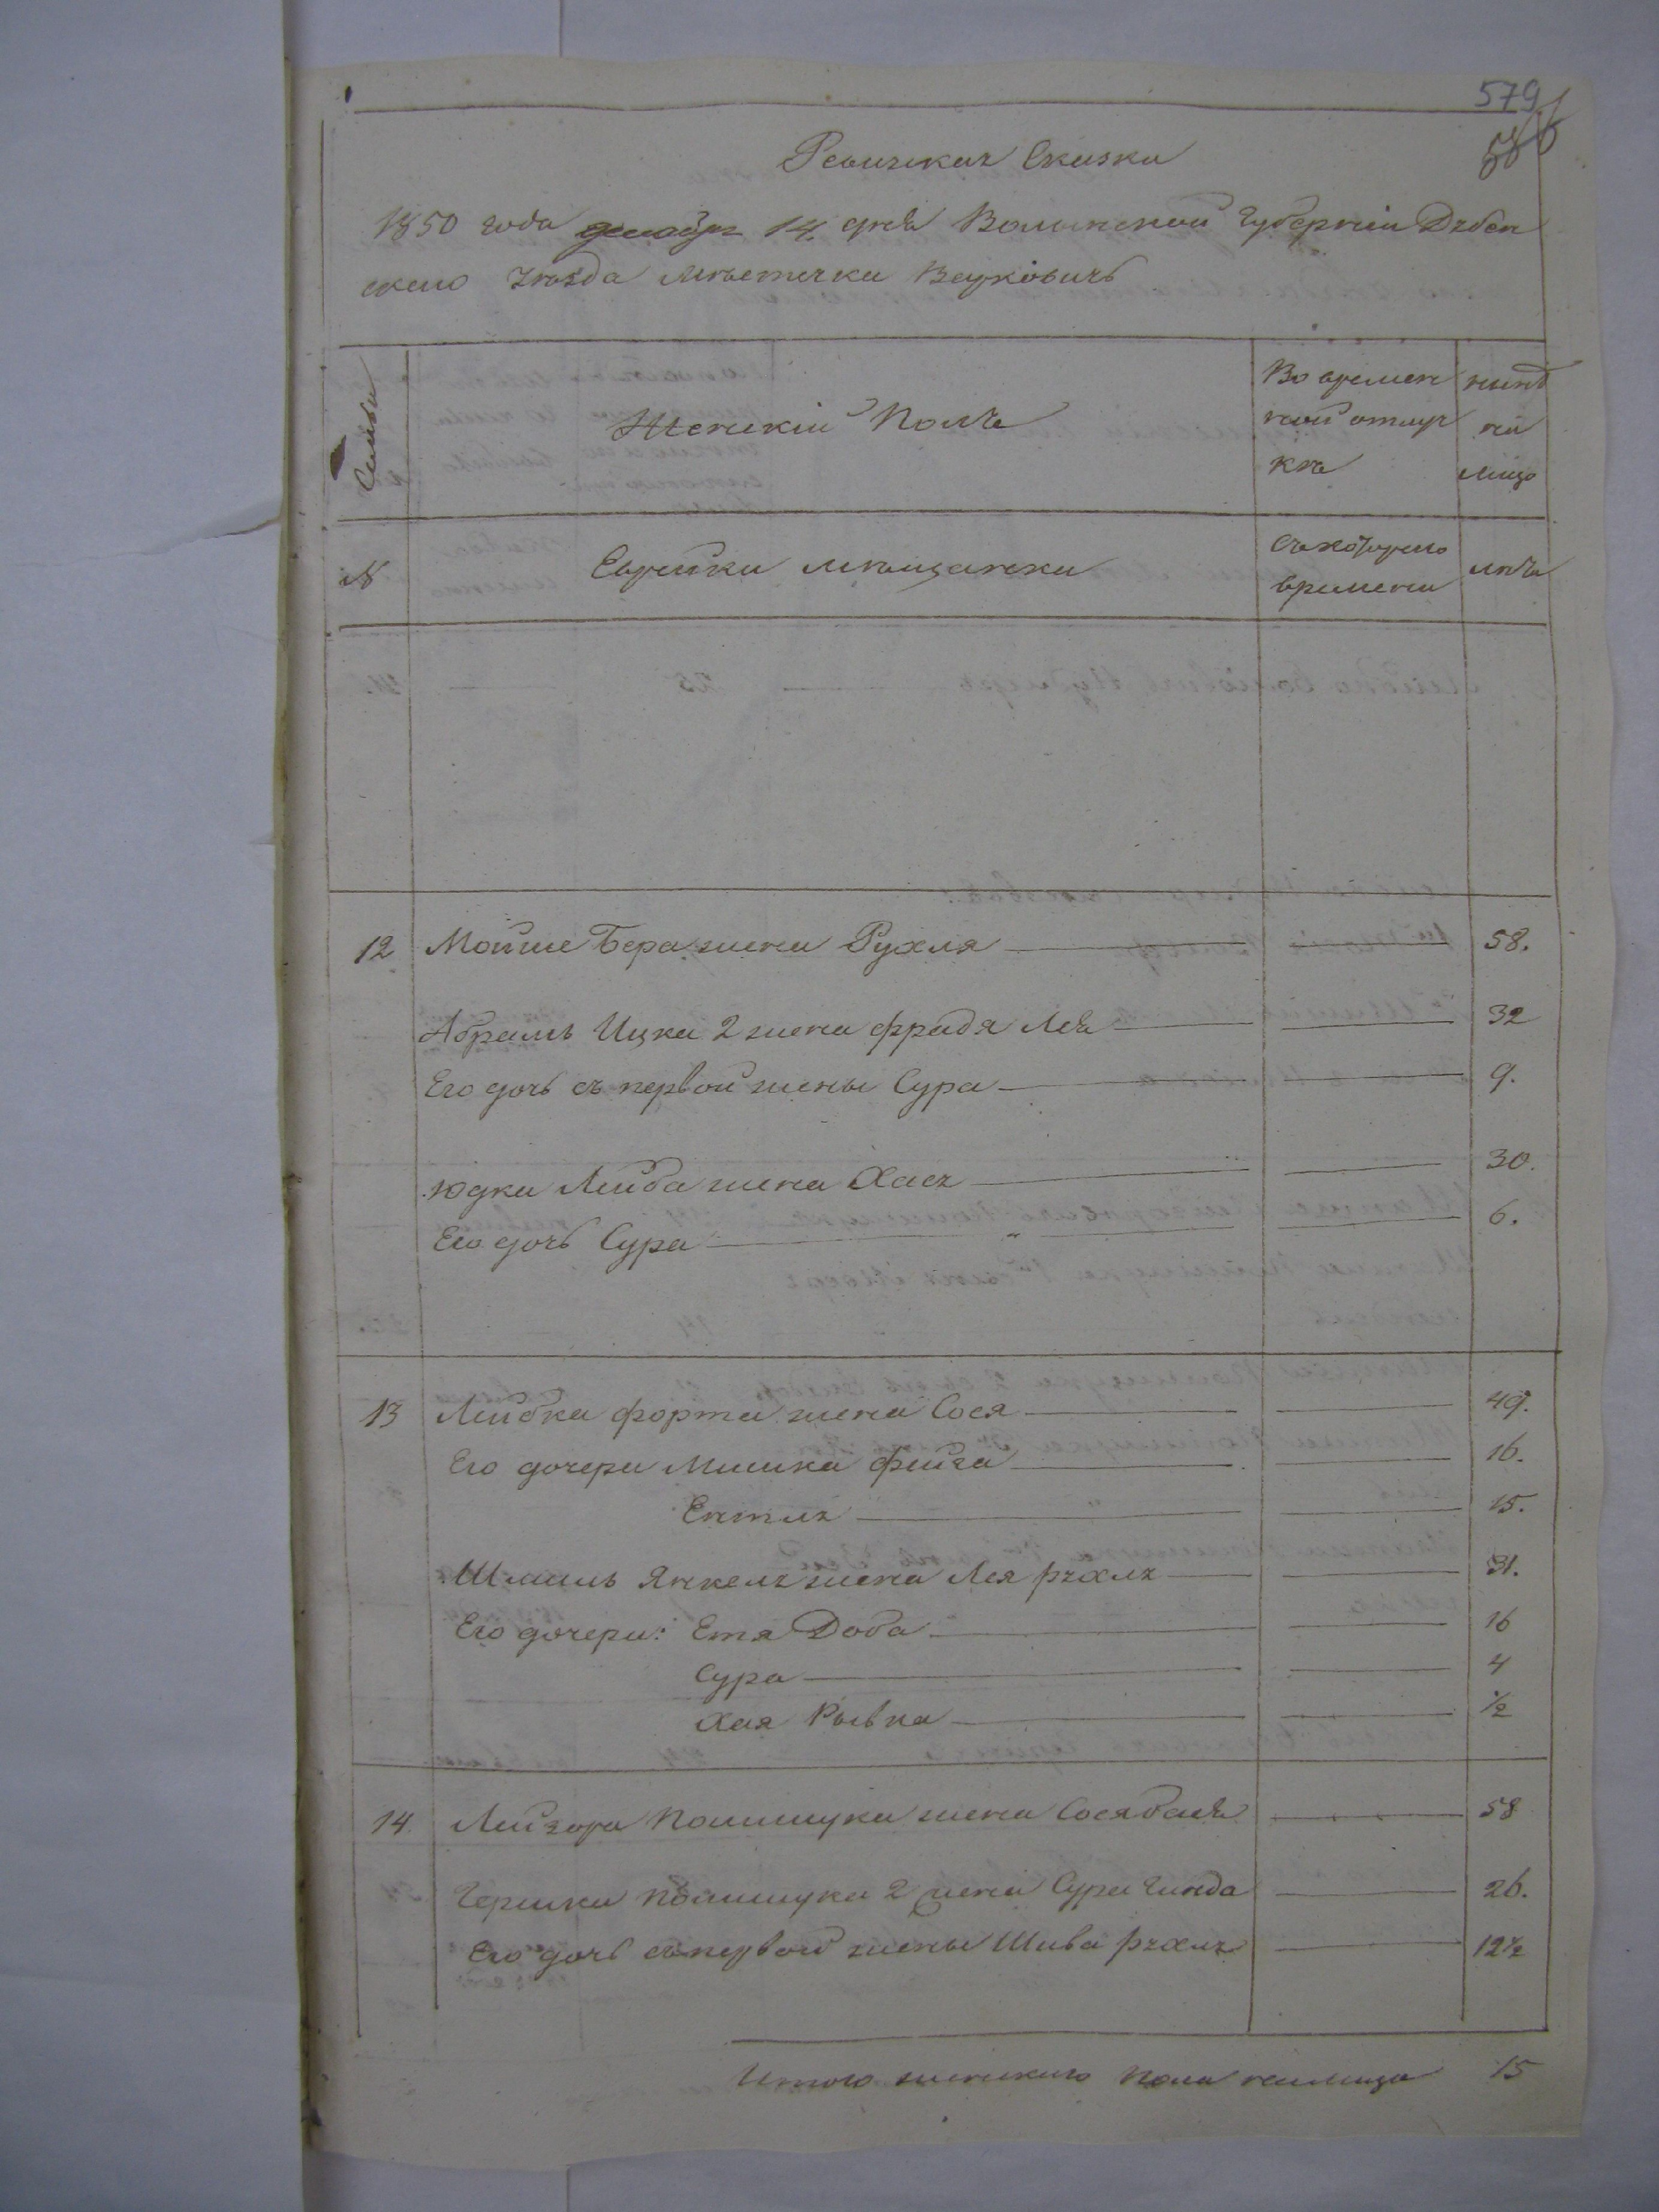 579
Ревизская Сказка
1850 года декабря 14. дня Волынской Губерніи Дубен
скаго уѣзда мѣстечка Верковичь
Семьи
Женскій Полъ
Во времен
ной отлуч
кѣ
нынѣ
на
лицо
№
Еврейки мѣщанки
Съ котораго
времени
лѣтъ
12 Мошки Бера жена Рухля 58.
Абрамъ Ицка 2 жена фрадя Леа 32
Его дочь съ первой жены Сура 9.
Юдки Лейба жена Хася 30.
Его дочь Сура 6.
13 Лейбка форта жена Сося 49.
Его дочери Мишка Фейга 16.
Ентля 15.
Шмиль Янкеля жена Лея рухля 31.
Его дочери: Етя Доба 16
Сура 4
Хая Рывка ½
14. Лейзора Полищука жена Сосябася 58
Гершка Полищука 2 жена Сура Гинда 26.
Его дочь съ первой жены Шива рухля 12½
Итого женскаго пола налицо 15